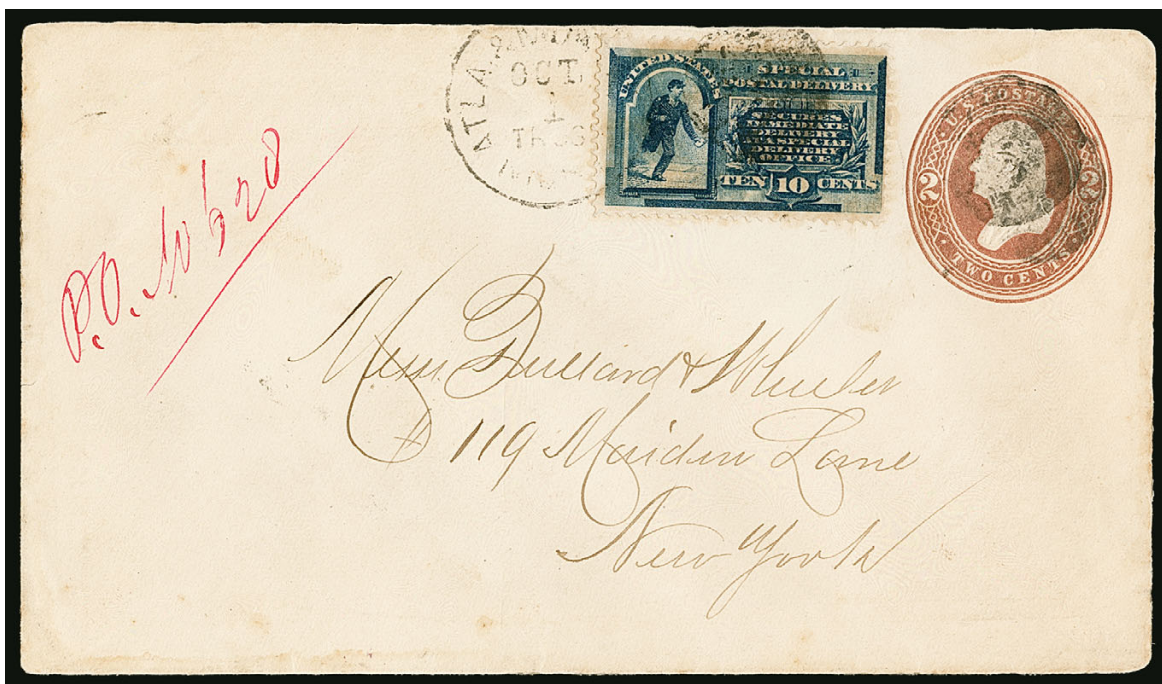 OCT.
1
UNITED STATES
SPECIAL
POSTAL DELIVERY
SECURES
IMMEDIATE
DELIVERY
AT A SPECIAL
DELIVERY
OFFICE
TEN 10 CENTS
U.S. POSTAGE
2 2
TWO CENTS
P.O. No 620
Mess Bulland & Wheeler
119 Maiden Lane
New York